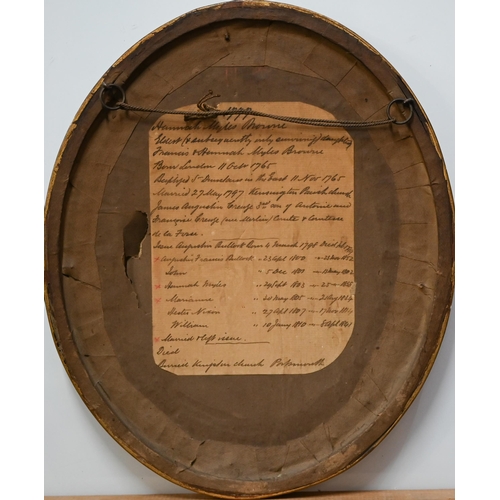 1779
Hannah Myles Browne
Eldest (& subsequently only surviving) daughter
Francis & Hannah Myles Browne
Born London 11 Oct 1765
Baptized St Dunstans in the East 11 Nov 1765
Married 27 May 1797 Kensington Parish Church
James Augustin Creuzé 3rd son of Antoine and
Françoise Creuzé (née Merlin) Comte & Comtesse
de la Fosse.
Jane Augustin Bullock Born 4 March 1798 Died
Augustin Francis Bullock " 23 Sept 1800 " 23 Nov 1852
John " 5 Dec 1801 "
Hannah Myles " 29 Sept 1803 " 25
Marianne " 20 May 1805 " 2 May 1864
Hester Nixon " 27 Sept 1807 " 17 Nov
William " 10 Janry 1810 " 8 Sept 1841
Married & left issue.
Died
Buried Kingston Church Portsmouth